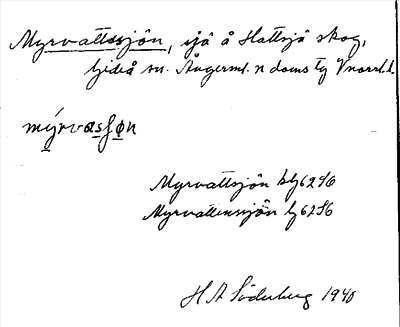 Myrvattssjön, sjö å Hattsjö skog,
Gideå sn. Ångerml. n doms tg Vnorrl. l.
mýrvasʃøn
Myrvattsjön kbl 62 S6
Myrvattensjön bl 62 S6
H A Söderberg 1940